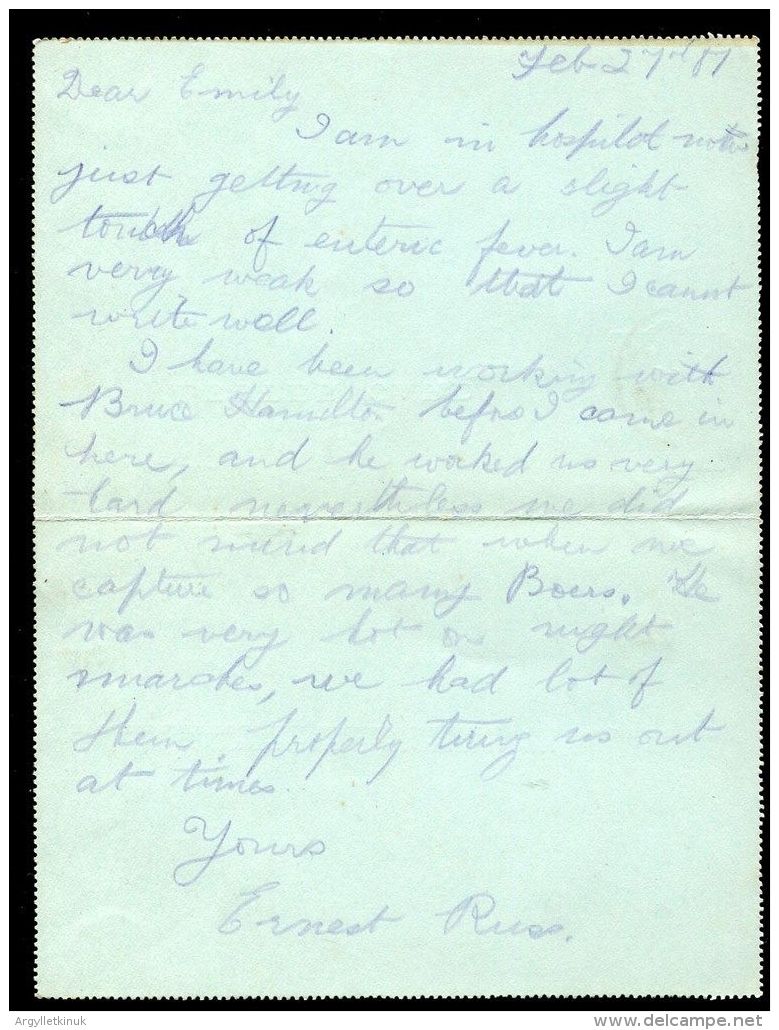 Feb 27th
Dear Emily
I am in hospitol now
just getting over a slight
touch of enteric fever. I am
very weak so that I cannt
write well.
I have been working with
Bruce Hamilton before I came in
here, and he worked us very
hard nevertheless we did
not mind that when we
capture so many Boers. He
was very hot on night
marches, we had lot of
them, properly tiring us out
at times.
Yours
Ernest Russ.
Argylletkinuk
delcampe.net